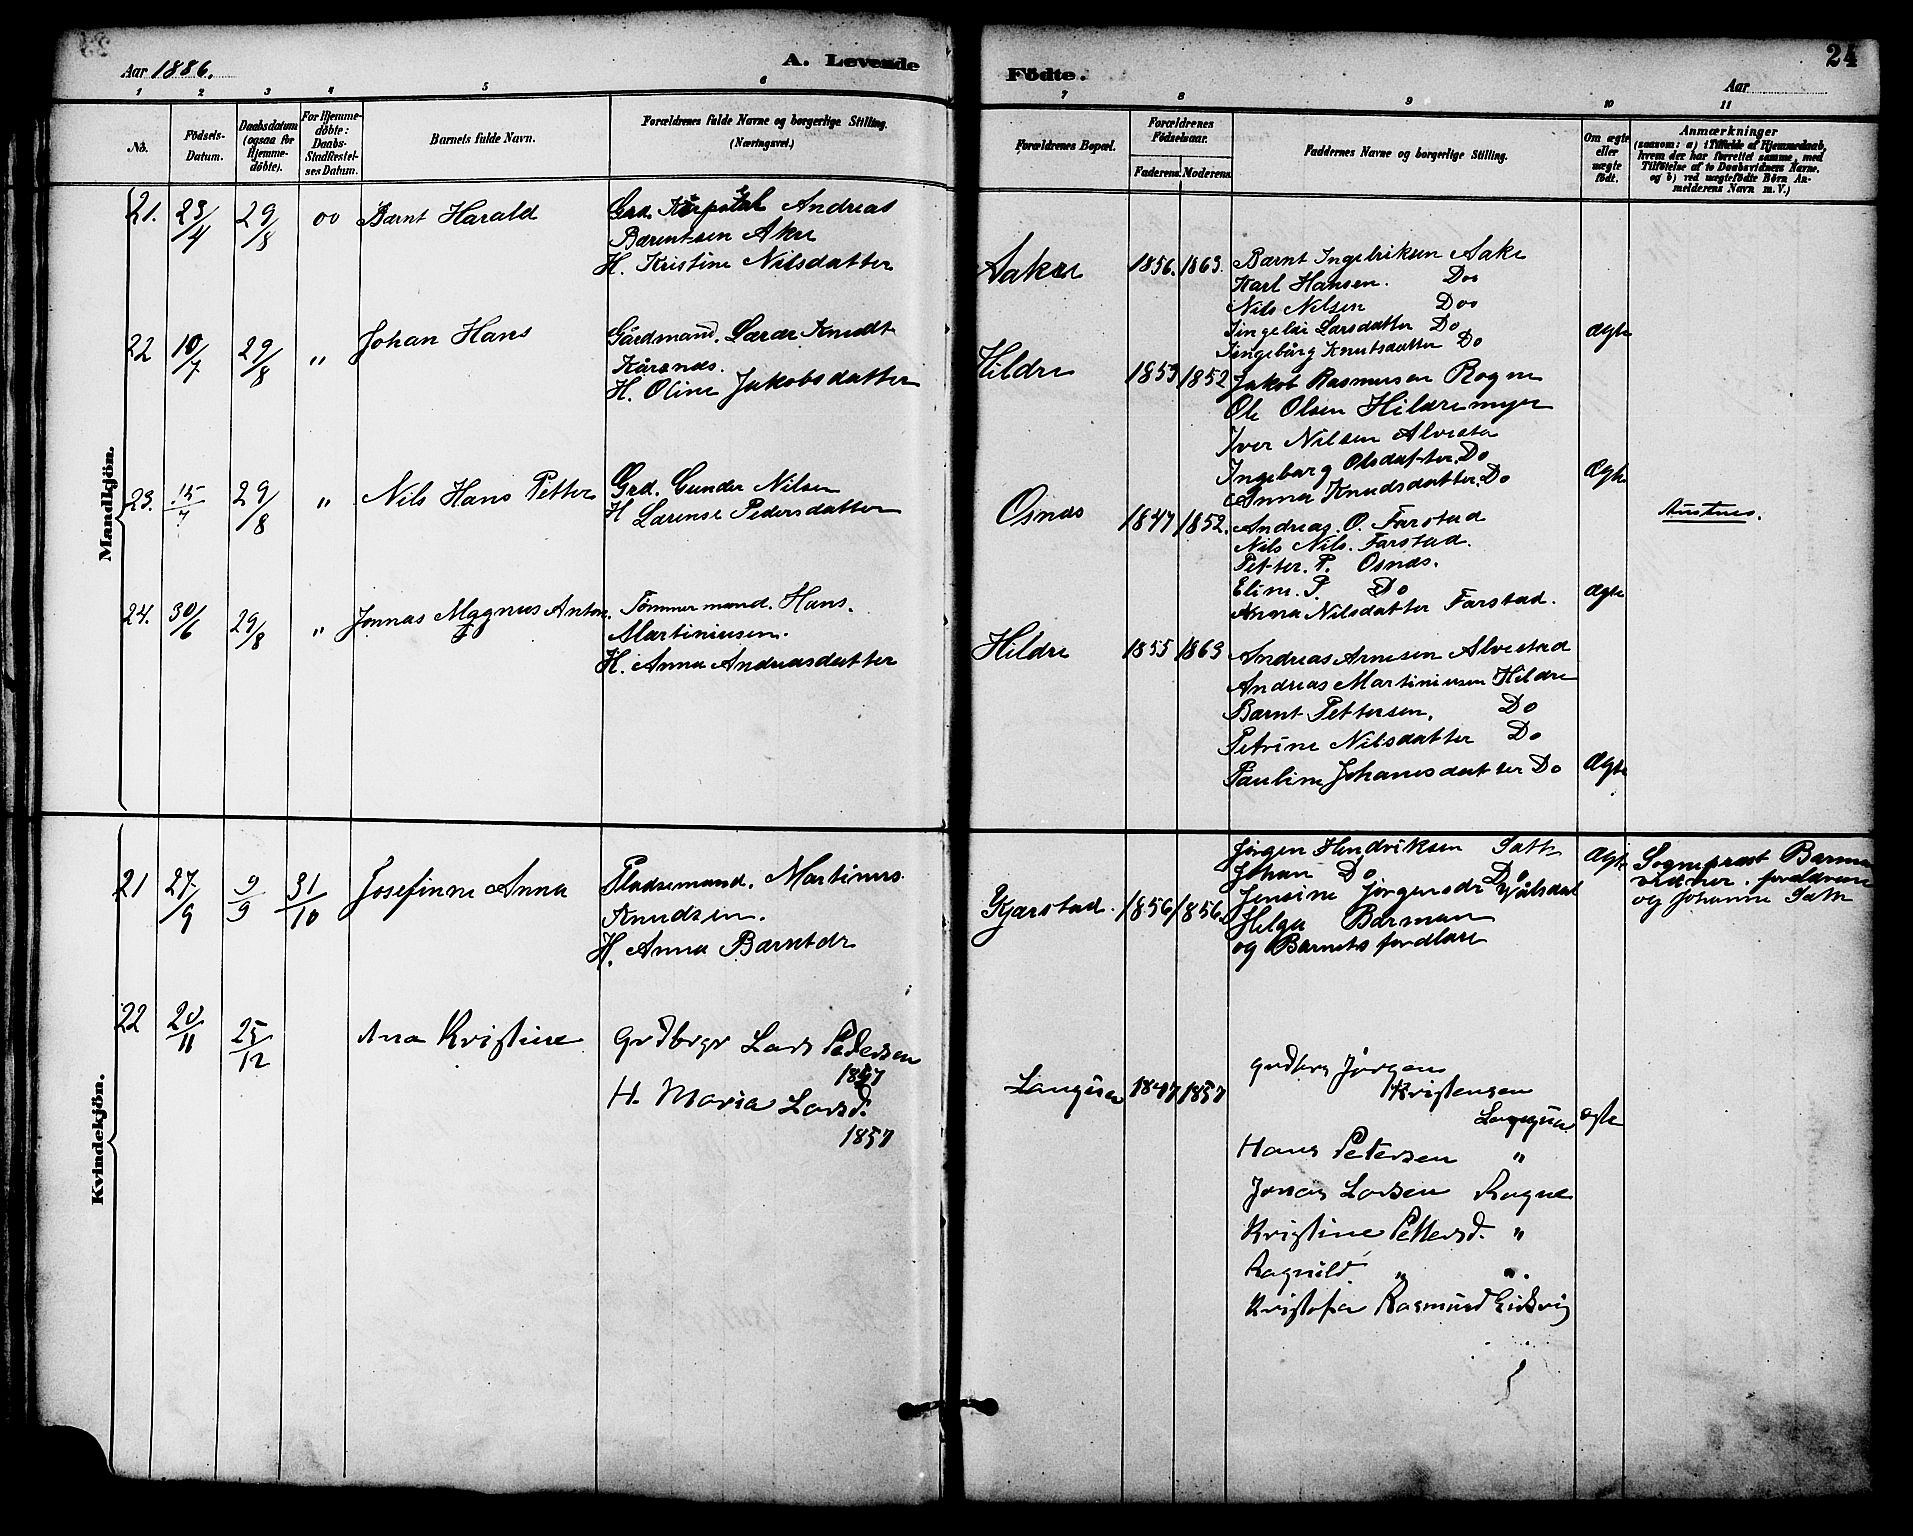 Aar 1886.
A. Levende
Födte.
24
Aar
1 2 3 4 5 6 7 8 9 10 11
No.
Födsels-
Datum.
Daabsdatum
(ogsaa for
Hjemme-
döbte).
For Hjemme-
döbte:
Daabs-
Stadfæstel-
ses Datum.
Barnets fulde Navn.
Forældrenes fulde Navne og borgerlige Stilling.
(Næringsvei.)
Forældrenes Bopæl.
Forældrenes
Födselsaar.
Faderens. Moderens.
Faddernes Navne og borgerlige Stilling.
Om ægte
eller
uægte
födt.
Anmærkninger
(saasom: a) i Tilfælde af Hjemmedaab,
hvem der har forrettet samme, med
Tilföielse af to Daabsvidners Navne,
og b) ved uægtefödte Börn An-
melderens Navn m. V.)
Mandkjön.
21. 23/4 29/8 oo Barnt Harald
Grd. Andreas
Bærentsen Akre
H. Kristine Nilsdatter
Aakre 1856. 1863.
Bærnt Ingebriksen Aake
Karl Hansen. Doo
Nils Nilsen Doo
Larsdatter Do
Ingebårg Knutsdatter Do
Ægte
22 10/7 29/8 " Johan Hans
Gårdmand. Lærer Knudt
H. Oline Jakobsdatter
Hildre 1853 1852
Jakob Rasmusen Rogne
Ole Olsen Hildremyr
Iver Nilsen Alvesta
Ingebarg Olsdatter. Do
Anna Knudsdatter. Do
Ægte
23. 15/7 29/8 " Nils Hans Petter
Grd. Gunder Nilsen
H Lærense Pedersdatter
Osnæs 1847 1852.
Andreas. O. Farstad
Nils Nils. Farstad.
Petter. P. Osnæs.
Eline. P. Do
Anna Nilsdatter Farstad.
Ægte
Austnes.
24. 30/6 29/8 " Jonnas Magnus Anton
Tømmermand. Hans.
Martiniusen.
H. Anna Andreasdatter
Hildre 1855 1863
Andreas Arnesen Alvestad
Andreas Martiniusen Hildre
Bærnt Pettersen, Do
Petrine Nilsdatter Do
Pauline Johanesdatter Do
Ægte
Kvindekjön.
21 27/9 9/9 31/10 Josefinne Anna
Pladsemand. Martinus
Knudsen.
H. Anna Bærntdr
Kjærstad. 1856 1856.
Jørgen Hendriksen Sætr
Johan Do Do
Jensine Jørgensdr
Helga Barman
og Barnets forældare
Ægte
Sogneprest Barman
vidner. forældrene
og Johanne Sætr
22 20/11 25/12 Ana Kristine
Grdbrgr Lars Pedersen
1847
H. Maria Larsd.
1857
Langøen 1847 1857
Grdbrgr Jørgen
Kristensen
Langøen
ægte
Hans Petersen "
Jonas Larsen Rogne
Kristine Pettersd. "
Ragnild " "
Kristofer Rasmusd